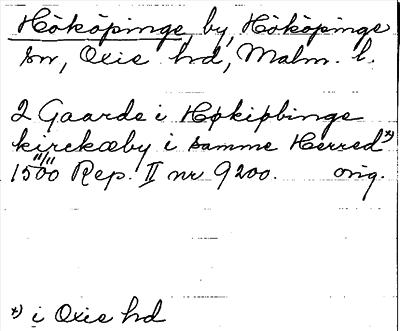 Hököpinge by, Hököpinge
sn, Oxie hd, Malm. l.
2 Gaarde i Høkipbinge
kirckæby i samme Herred*)
11/11
1500 Rep. II nr 9200. orig.
*) i Oxie hd